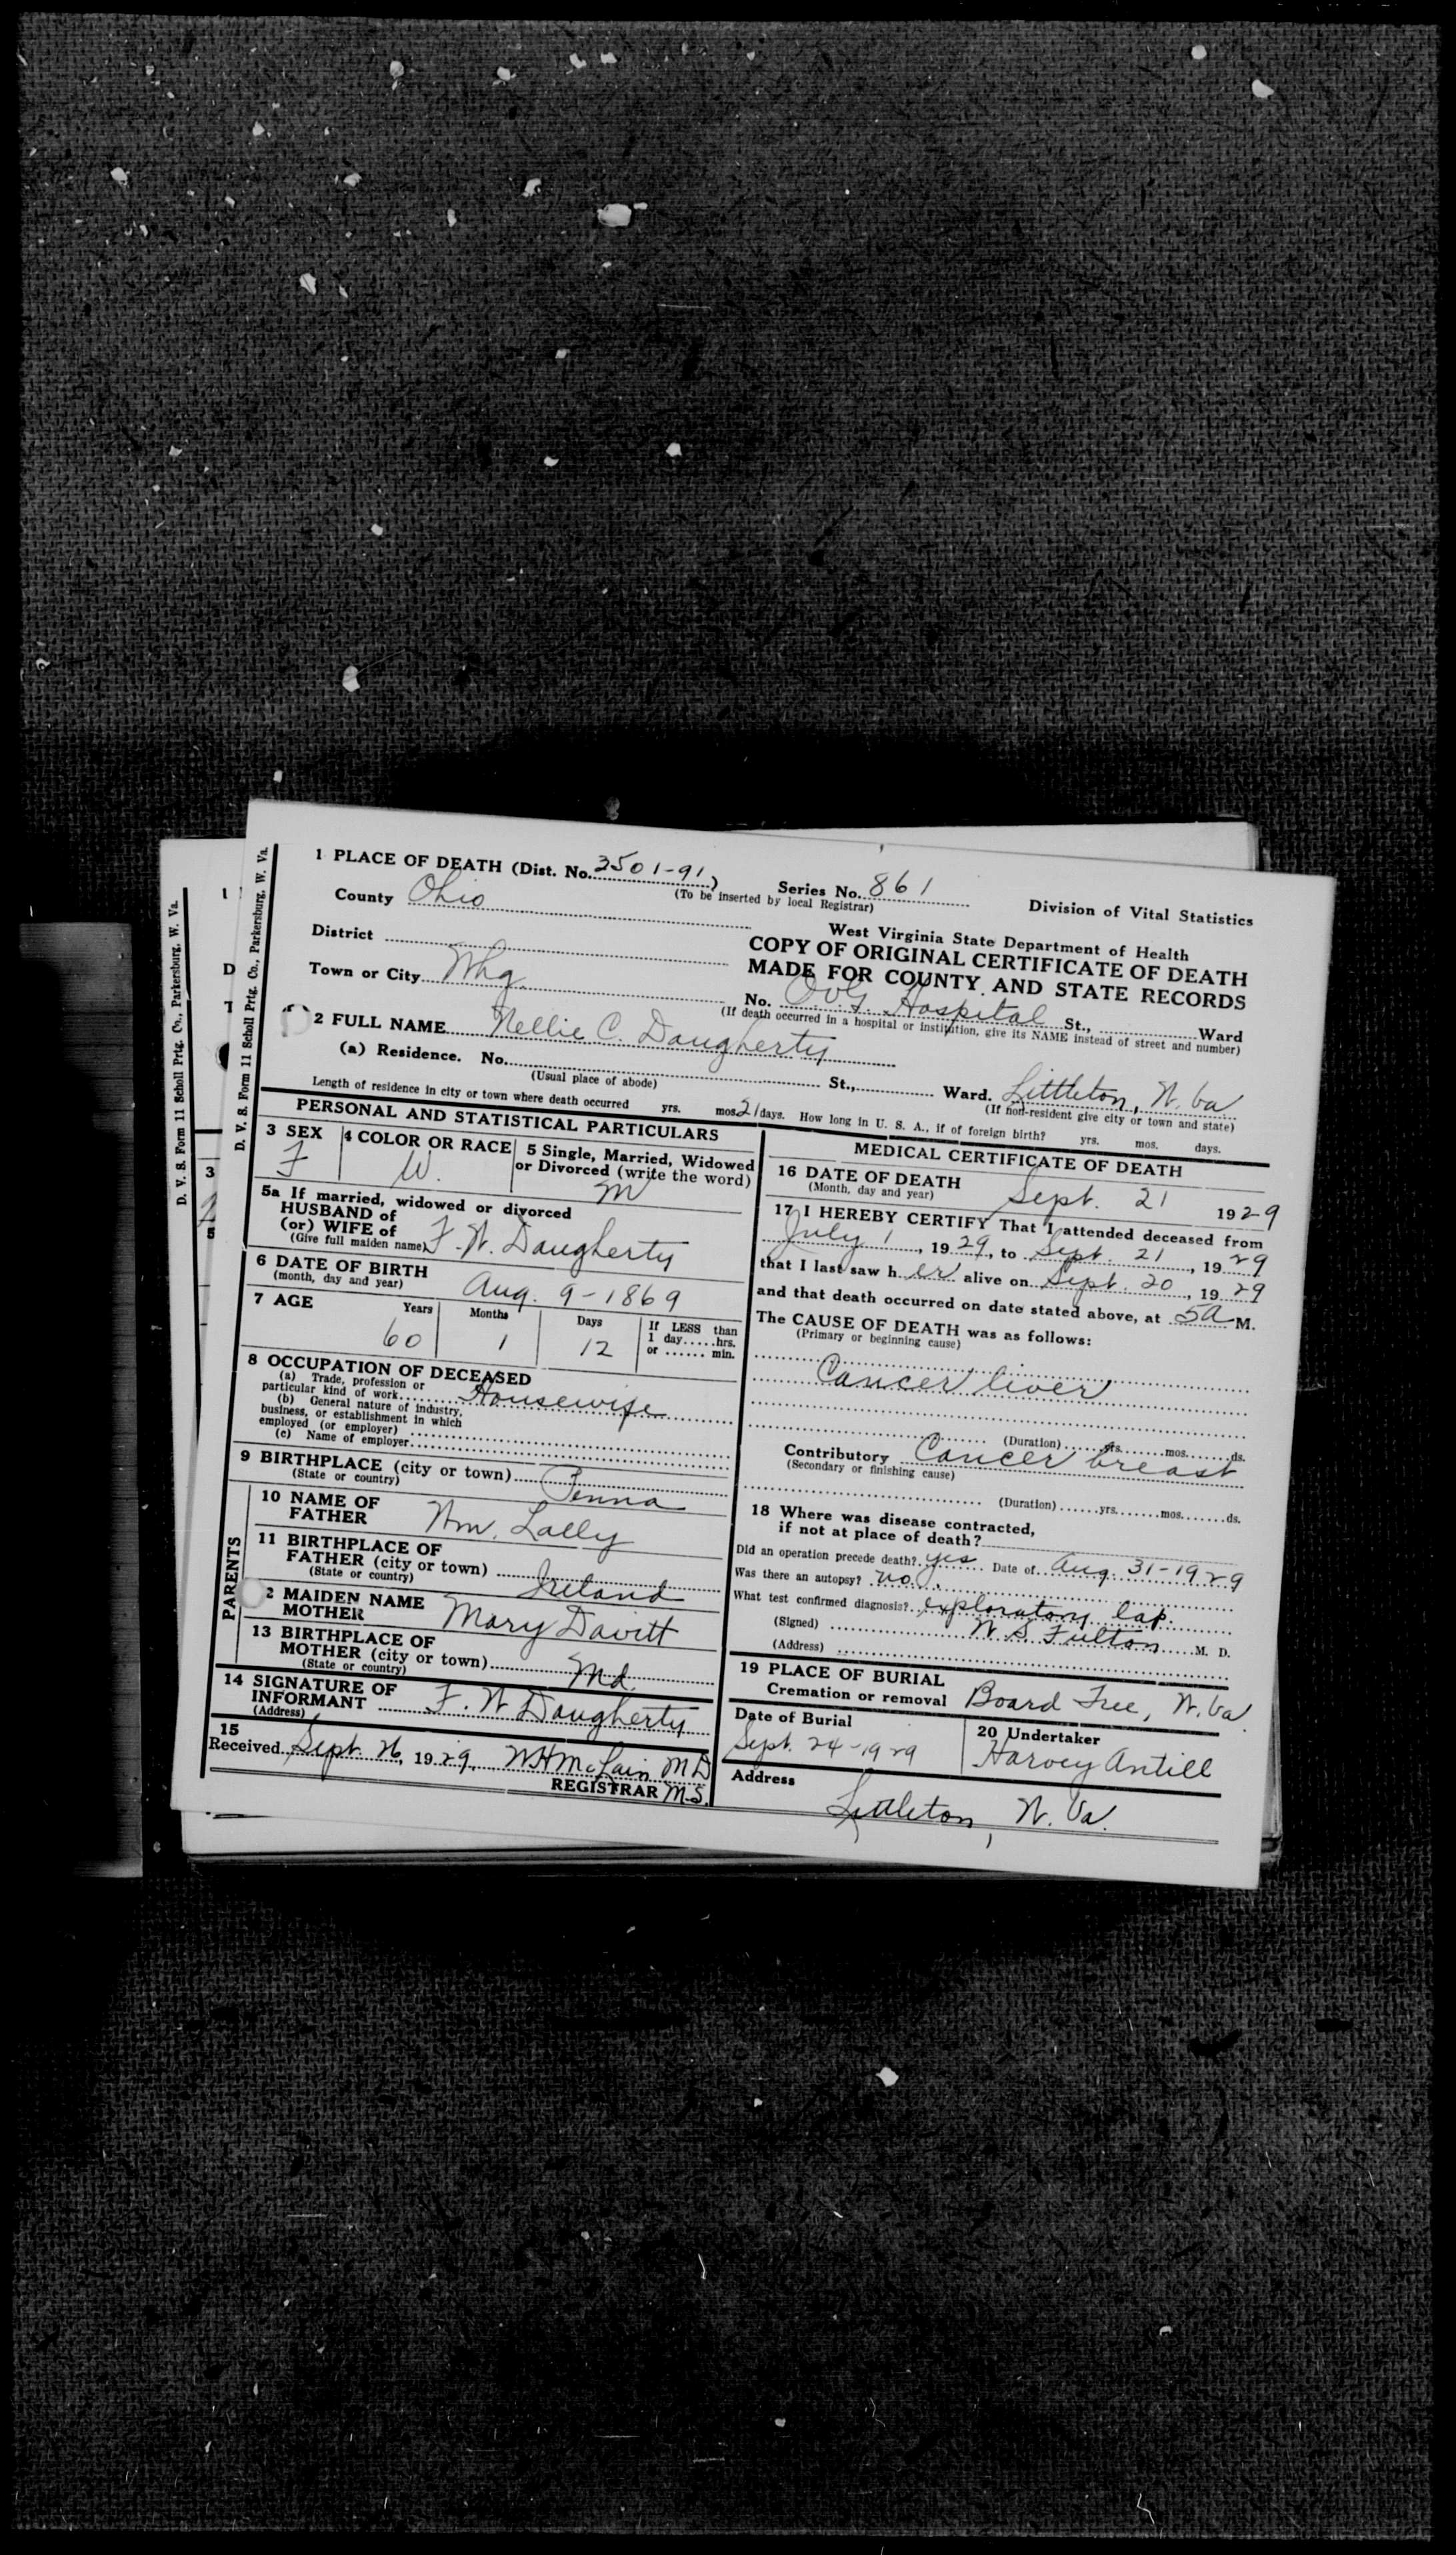 D. V. S. Form 11 Scholl Prtg. Co., Parkersburg, W. Va.
D. V. S. Form 11 Scholl Prtg. Co., Parkersburg, W. Va.
1 PLACE OF DEATH (Dist. No. 3501-91) Series No. 861
(To be inserted by local Registrar)
County Ohio
Division of Vital Statistics
West Virginia State Department of Health
COPY OF ORIGINAL CERTIFICATE OF DEATH
MADE FOR COUNTY AND STATE RECORDS
District
Town or City Whg. No. OVG Hospital St., Ward
(If death occurred in a hospital or institution, give its NAME instead of street and number)
2 FULL NAME Nellie C. Daugherty
(a) Residence. No. St., Ward. Littleton, W. Va
(Usual place of abode) (If non-resident give city or town and state)
Length of residence in city or town where death occurred yrs. mos. 21 days. How long in U. S. A., if of foreign birth? yrs. mos. days.
PERSONAL AND STATISTICAL PARTICULARS
3 SEX 4 COLOR OR RACE 5 Single, Married, Widowed
or Divorced (write the word)
F W. M
5a If married, widowed or divorced
HUSBAND of
(or) WIFE of F. W. Daugherty
(Give full maiden name)
6 DATE OF BIRTH
(month, day and year) Aug. 9-1869
7 AGE Years Months Days If LESS than
1 day.....hrs.
or ...... min.
60 1 12
8 OCCUPATION OF DECEASED
(a) Trade, profession or
particular kind of work Housewife
(b) General nature of industry,
business, or establishment in which
employed (or employer)
(c) Name of employer
9 BIRTHPLACE (city or town) Penna
(State or country)
PARENTS
10 NAME OF
FATHER Wm. Lally
11 BIRTHPLACE OF
FATHER (city or town) Ireland
(State or country)
2 MAIDEN NAME
MOTHER Mary Davitt
13 BIRTHPLACE OF
MOTHER (city or town) Md.
(State or country)
14 SIGNATURE OF
INFORMANT F. W Daugherty
(Address)
15
Received Sept. 26, 1929. WHMcLain MD
REGISTRAR M.S.
MEDICAL CERTIFICATE OF DEATH
16 DATE OF DEATH
(Month, day and year) Sept. 21 1929
17 I HEREBY CERTIFY That I attended deceased from
July 1, 1929, to Sept. 21, 1929
that I last saw her alive on Sept. 20, 1929
and that death occurred on date stated above, at 5a M.
The CAUSE OF DEATH was as follows:
(Primary or beginning cause)
Cancer liver
(Duration) yrs. mos. ds.
Contributory Cancer breast
(Secondary or finishing cause)
(Duration) yrs. mos. ds.
18 Where was disease contracted,
if not at place of death?
Did an operation precede death? yes Date of Aug. 31-1929
Was there an autopsy? no.
What test confirmed diagnosis? exploratory lap.
(Signed) W. S. Fulton M. D.
(Address)
19 PLACE OF BURIAL
Cremation or removal Board Tree, W. Va.
Date of Burial 20 Undertaker
Sept. 24-1929 Harvey Antill
Address
Littleton, W. Va.